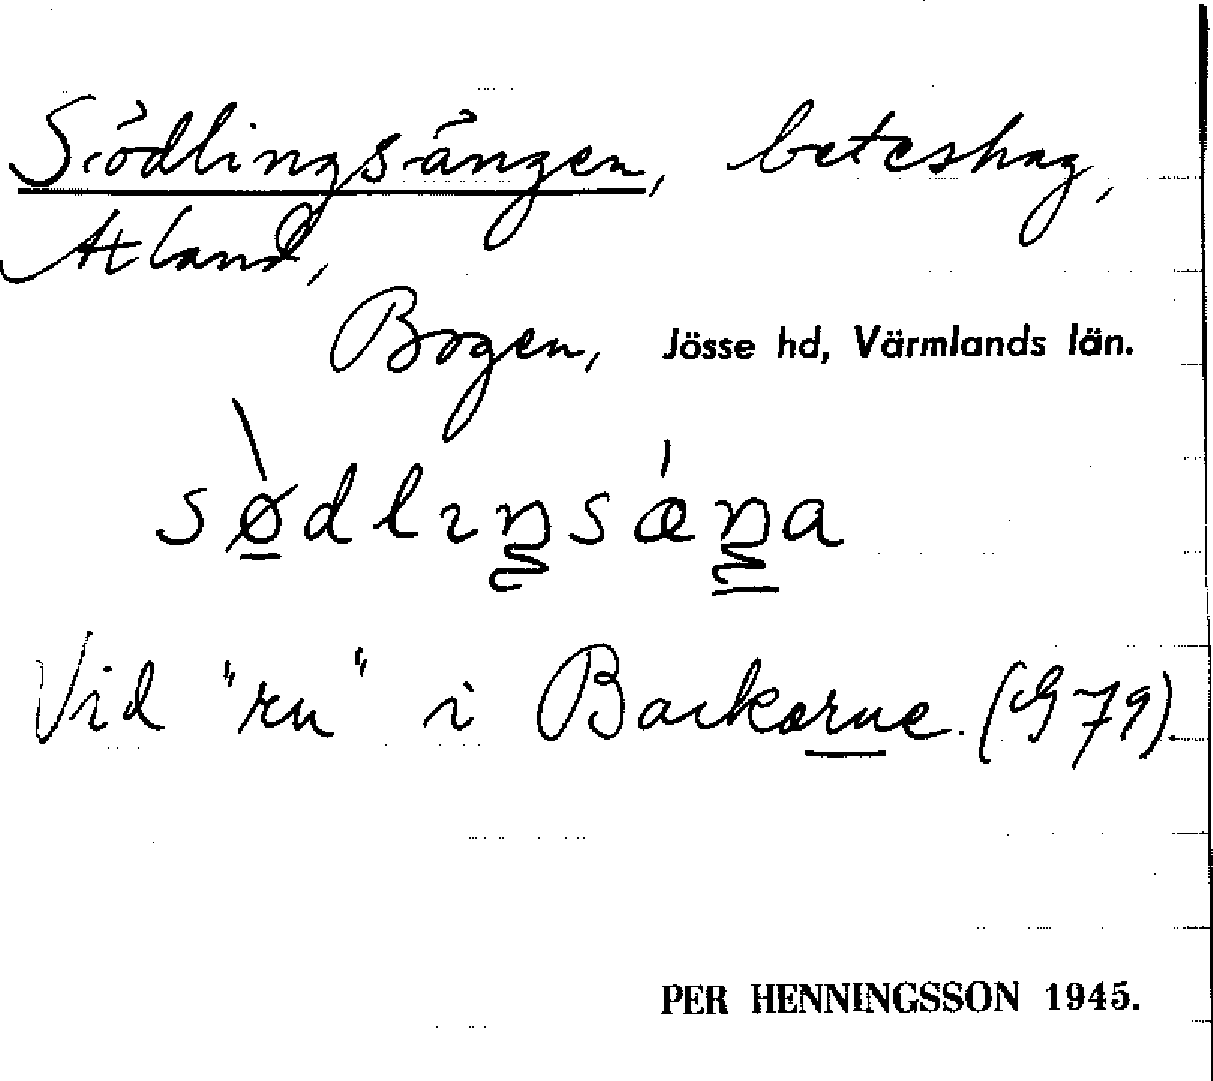 Södlingsängen, beteshag,
Åtland,
Bogen, Jösse hd, Värmlands län.
sø̀dlıŋsæ̍ŋa
Vid "ru" i Backarne. (G 79).
PER HENNINGSSON 1945.